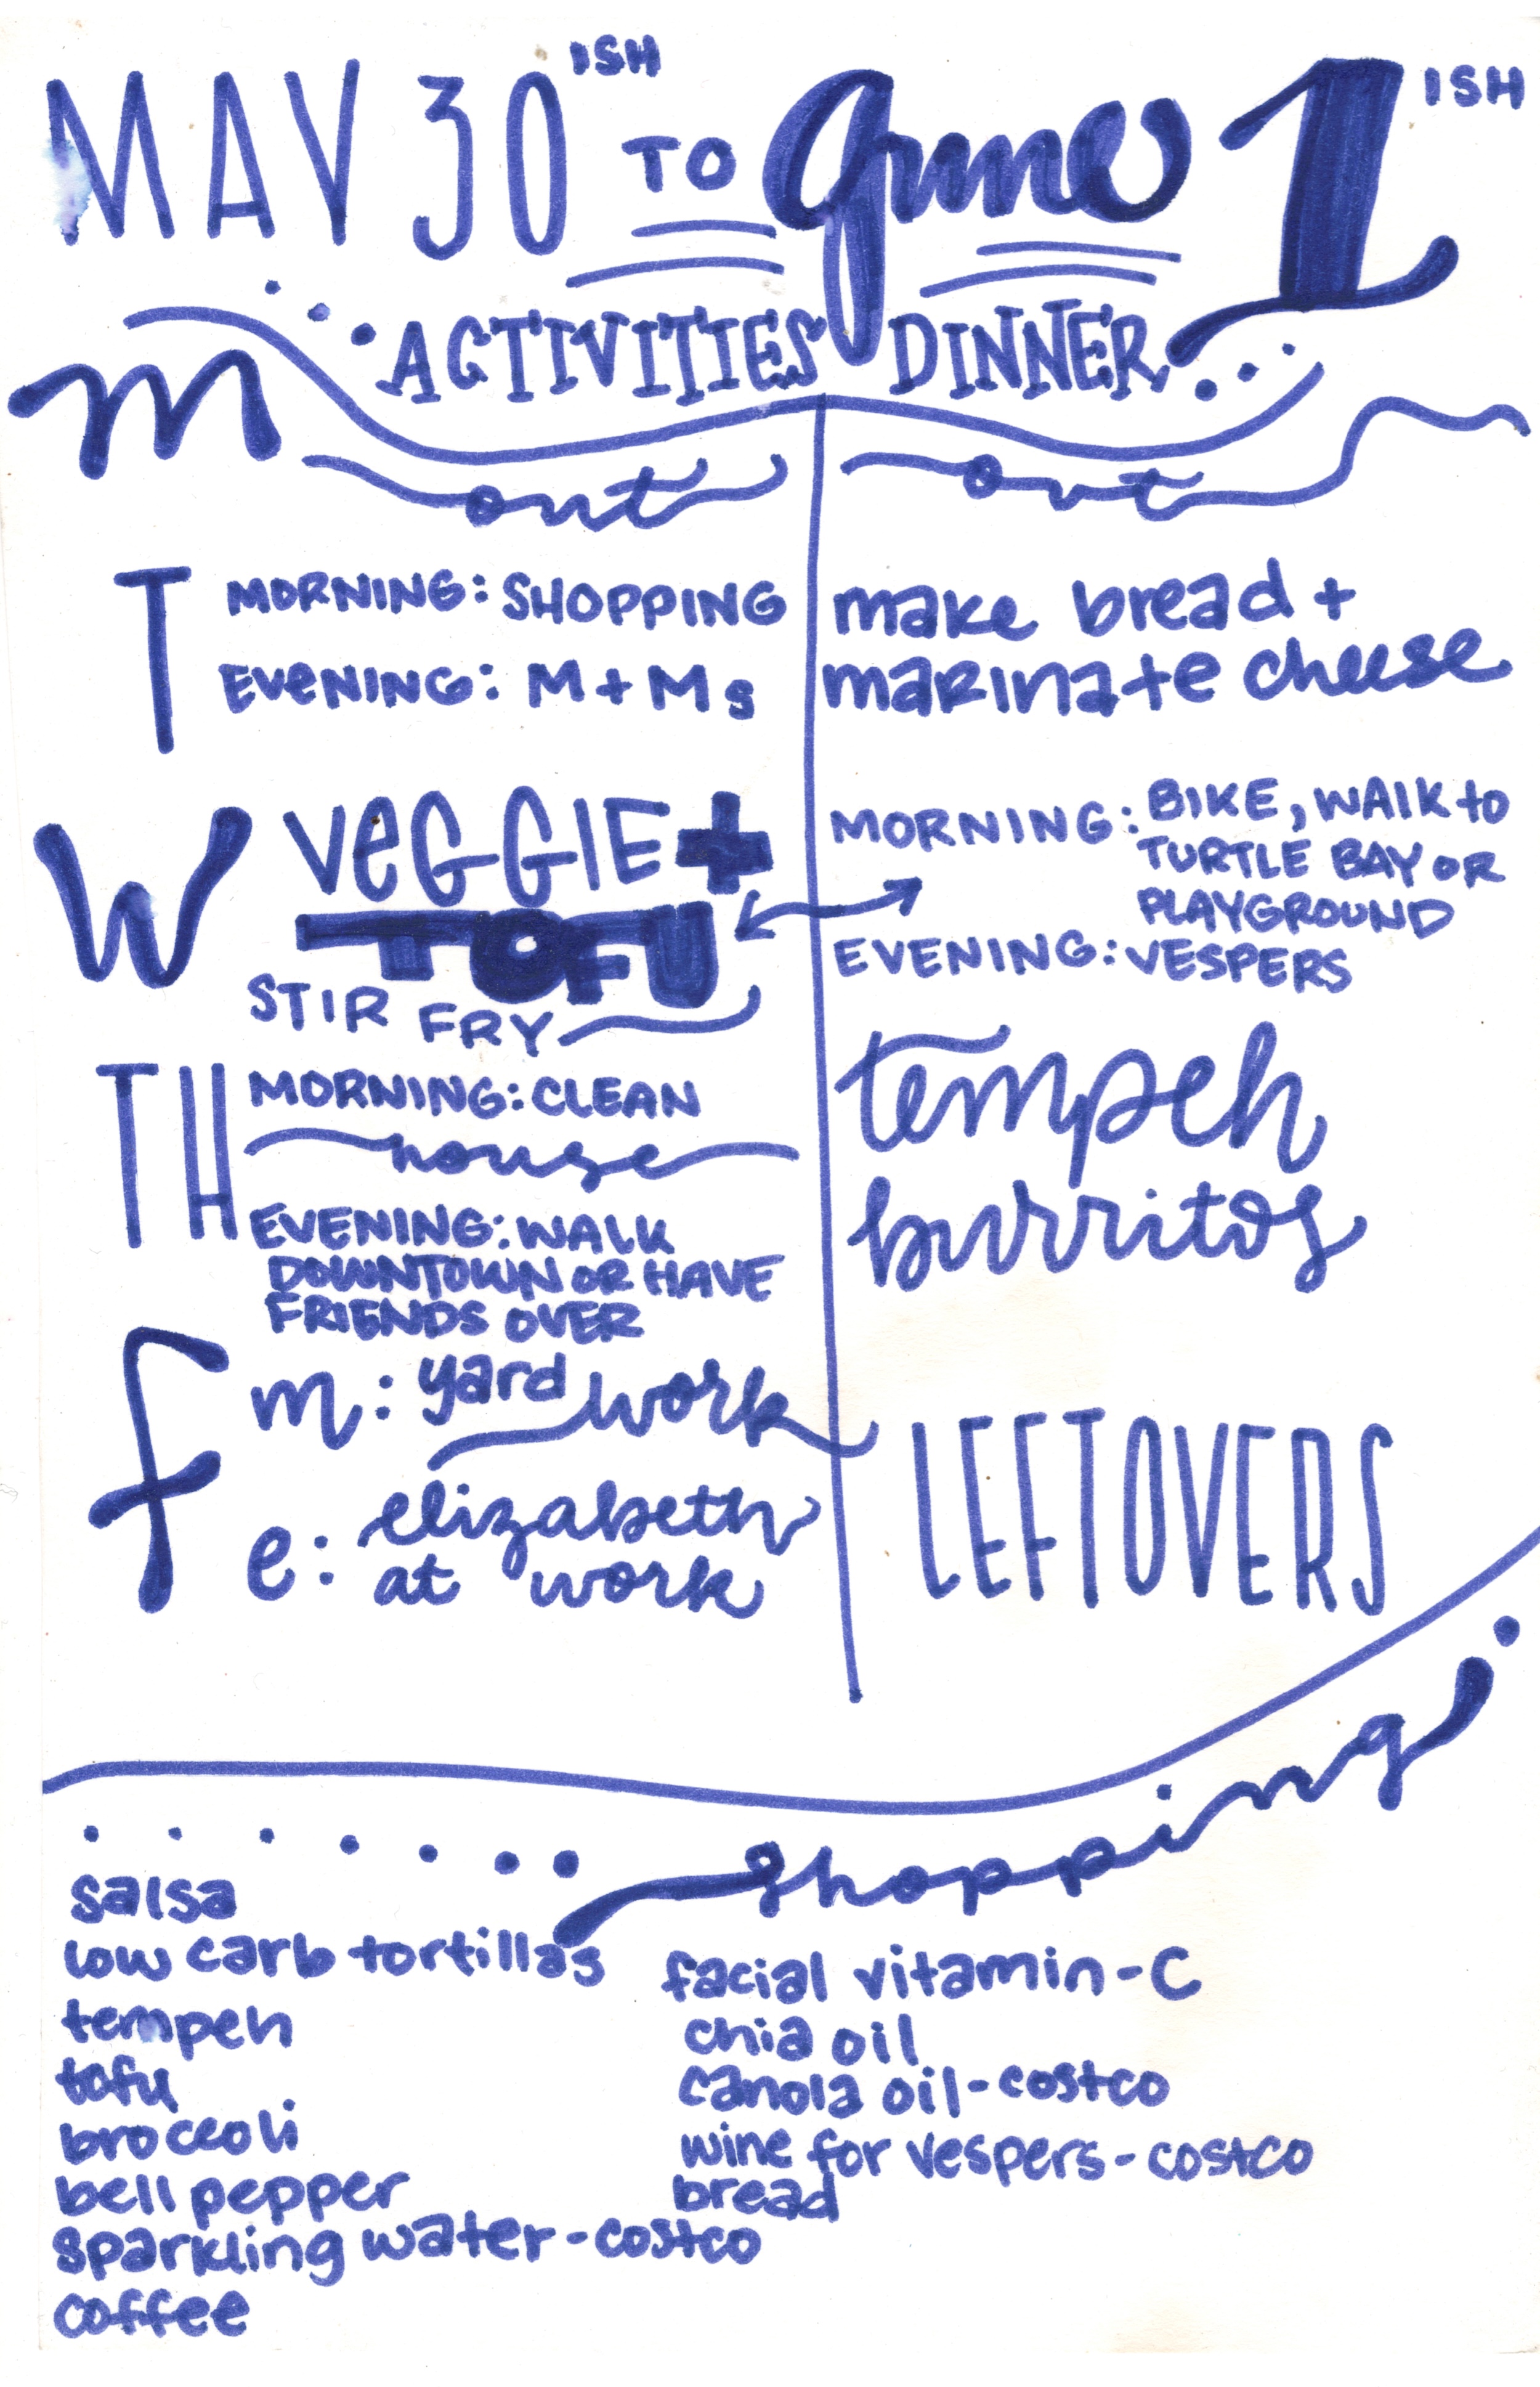 MAY 30 ISH TO June 1 ISH
ACTIVITIES DINNER
M
out
out
T
MORNING: SHOPPING
EVENING: M + Ms
make bread +
marinate cheese
W
VEGGIE +
TOFU
STIR FRY
MORNING: BIKE, WALK to
TURTLE BAY OR
PLAYGROUND
EVENING: VESPERS
TH
MORNING: CLEAN
house
EVENING: WALK
DOWNTOWN OR HAVE
FRIENDS OVER
tempeh
burritos
F
m: yard work
e: elizabeth
at work
LEFTOVERS
shopping
salsa
low carb tortillas
tempeh
tofu
broccoli
bell pepper
sparkling water - costco
coffee
facial vitamin-C
chia oil
canola oil - costco
wine for vespers - costco
bread